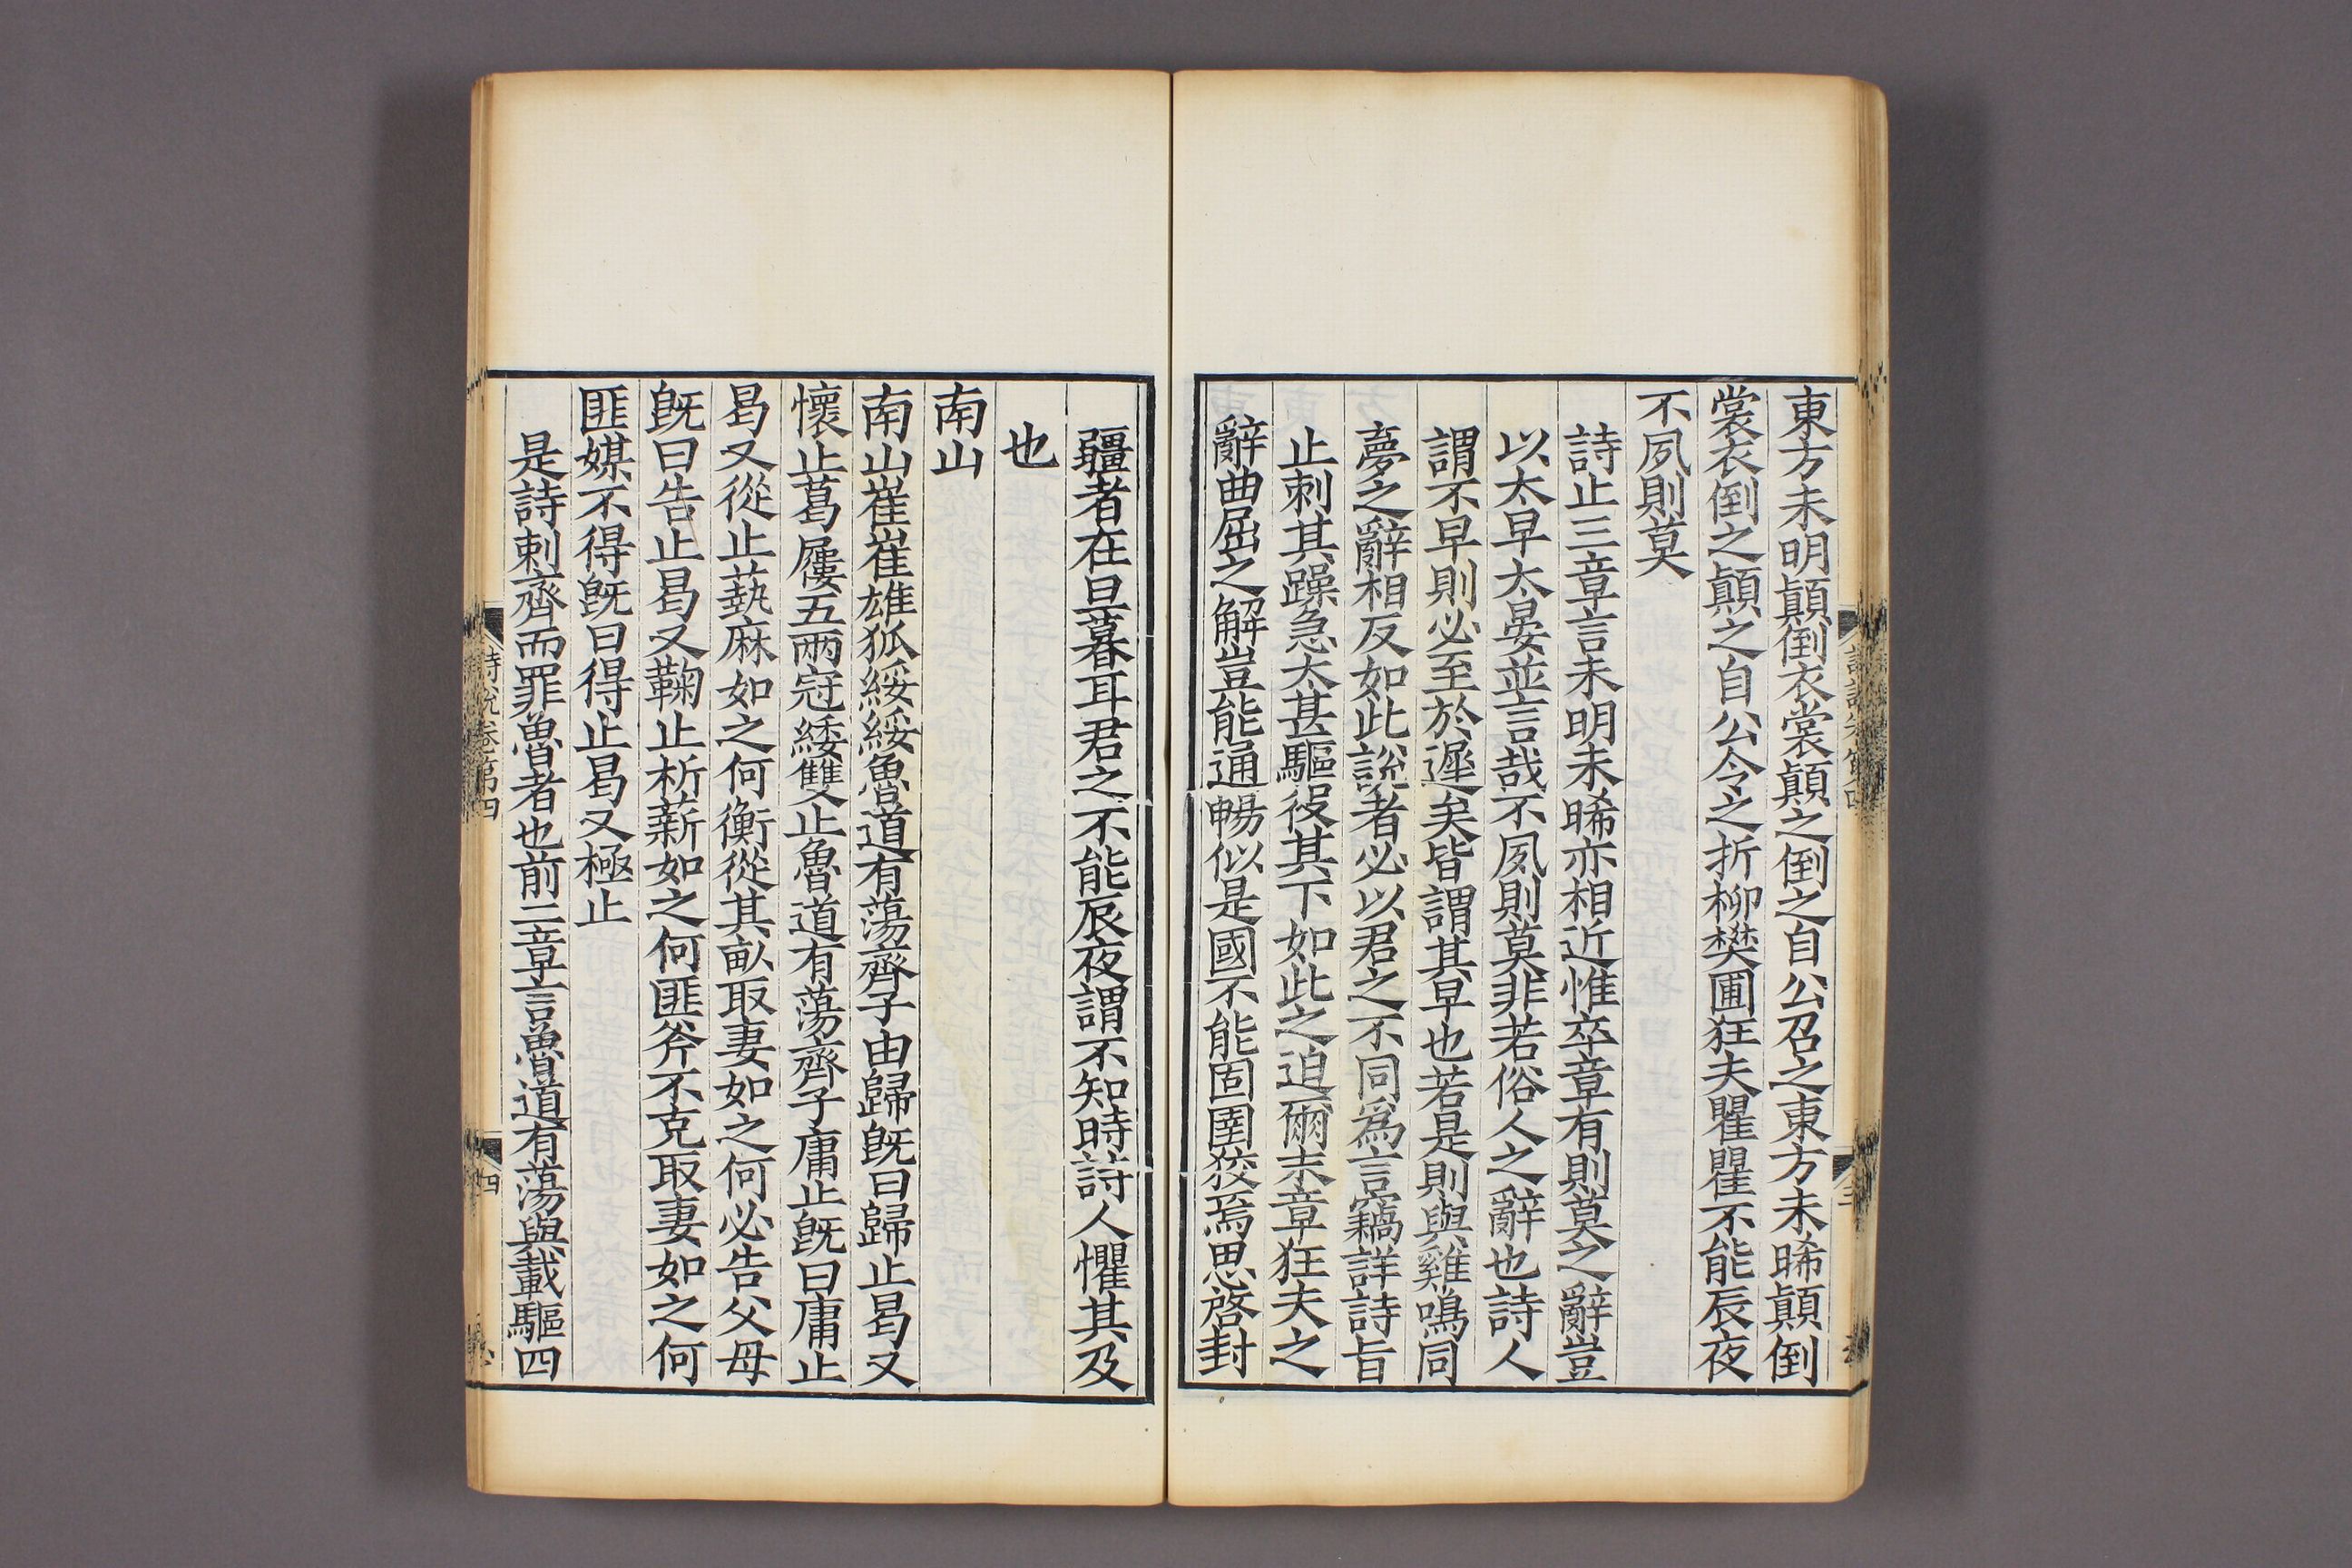 東方未明顛倒衣裳顛之倒之自公召之東方未晞顛倒
裳衣倒之顛之自公令之折柳樊圃狂夫瞿瞿不能辰夜
不夙則莫
詩止三章言未明未晞亦相近惟卒章有則莫之辭豈
以太早太晏並言哉不夙則莫非若俗人之辭也詩人
謂不早則必至於遲矣皆謂其早也若是則與雞鳴同
夢之辭相反如此說者必以君之不同爲言竊詳詩旨
止刺其躁急太甚驅役其下如此之迫爾末章狂夫之
辭曲屈之解豈能通暢似是國不能固圉狡焉思啓封
疆者在旦暮耳君之不能辰夜謂不知時詩人懼其及
也
南山
南山崔崔雄狐綏綏魯道有蕩齊子由歸旣曰歸止曷又
懷止葛屨五兩冠緌雙止魯道有蕩齊子庸止旣曰庸止
曷又從止蓺麻如之何衡從其畝取妻如之何必告父母
旣曰告止曷又鞠止析薪如之何匪斧不克取妻如之何
匪媒不得旣曰得止曷又極止
是詩刺齊而罪魯者也前二章言魯道有蕩與載驅四
詩說卷第四
四